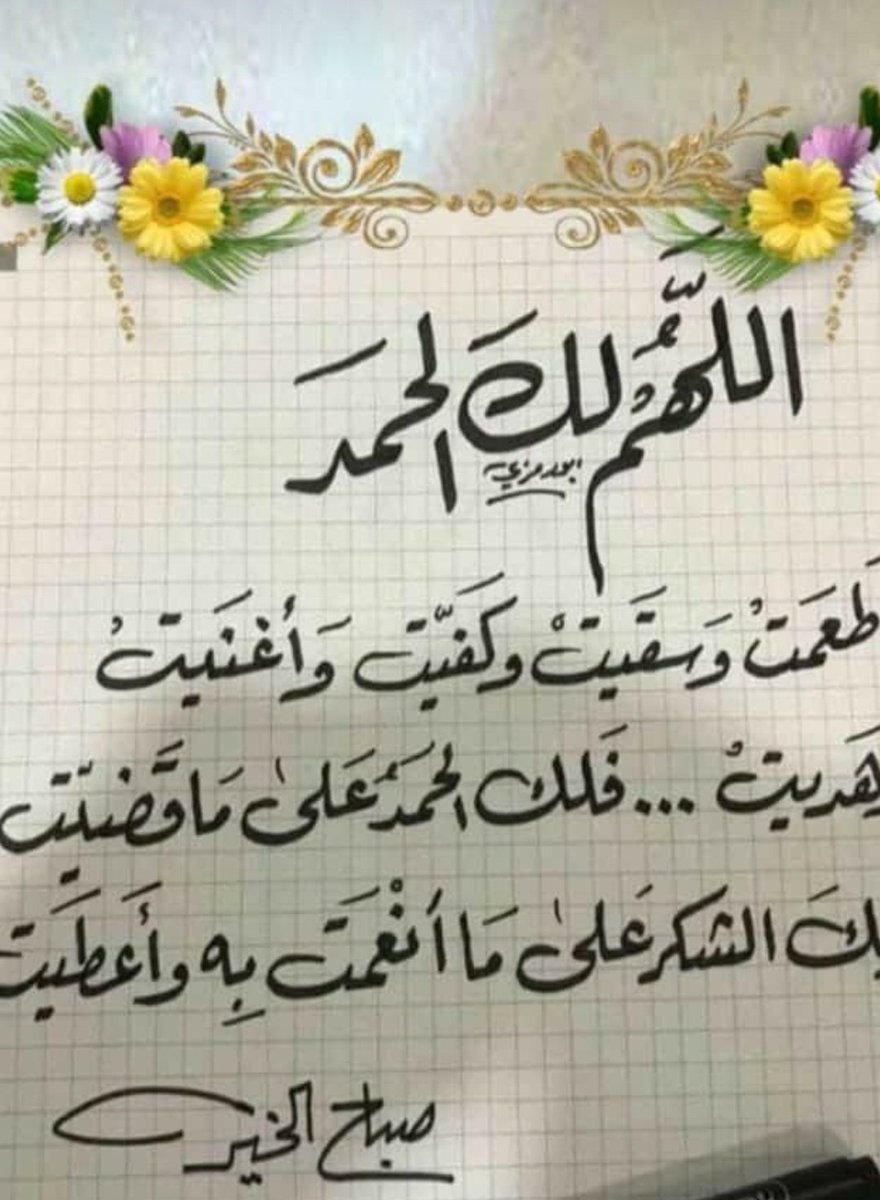 اللَّهُم لكَ الحمدَ
طَعَمتُ وَسقَيتْ وكَفيّت وَأغنَيتُ
هَديتُ ... فَلك الحَمدُ عَلىٰ مَا قَضيّت
لكَ الشكر عَلىٰ مَا أنْعَمتَ بِهِ وأَعطَيت
صباح الخير